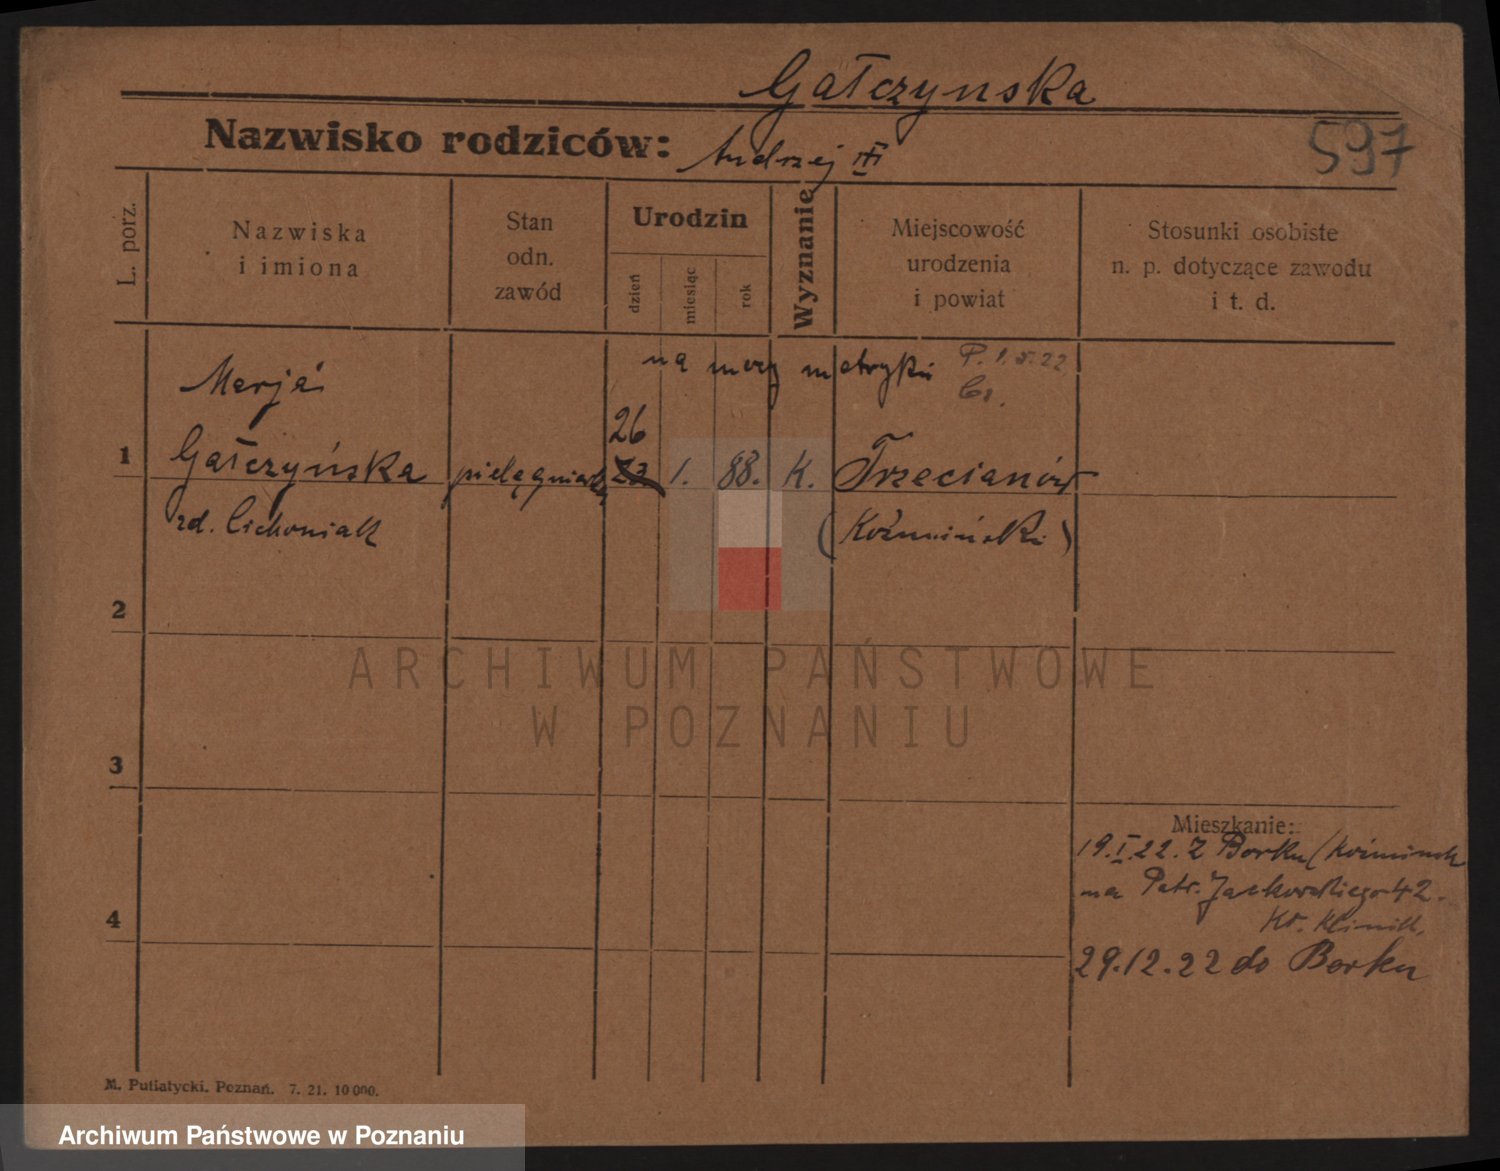 Gałczynska
Nazwisko rodziców: Andrzej III
597
L. porz.
Nazwiska
i imiona
Stan
odn.
zawód
Urodzin
dzień
miesiąc
rok
Wyznanie
Miejscowość
urodzenia
i powiat
Stosunki osobiste
n. p. dotyczące zawodu
i t. d.
na mocy metryki
Marja
26
1 Gałczyńska pielęgniarka 1. 88. K. Trzecianów
zd. Cichoniak (Koźmiński)
2
ARCHIWUM PAŃSTWOWE
W POZNANIU
3
Mieszkanie:
19.I.22. z Borku (Koźminsk
na Patr. Jackowskiego 42.
4
29.12.22 do Borku
M. Putiatycki. Poznań. 7. 21. 10 000.
Archiwum Państwowe w Poznaniu